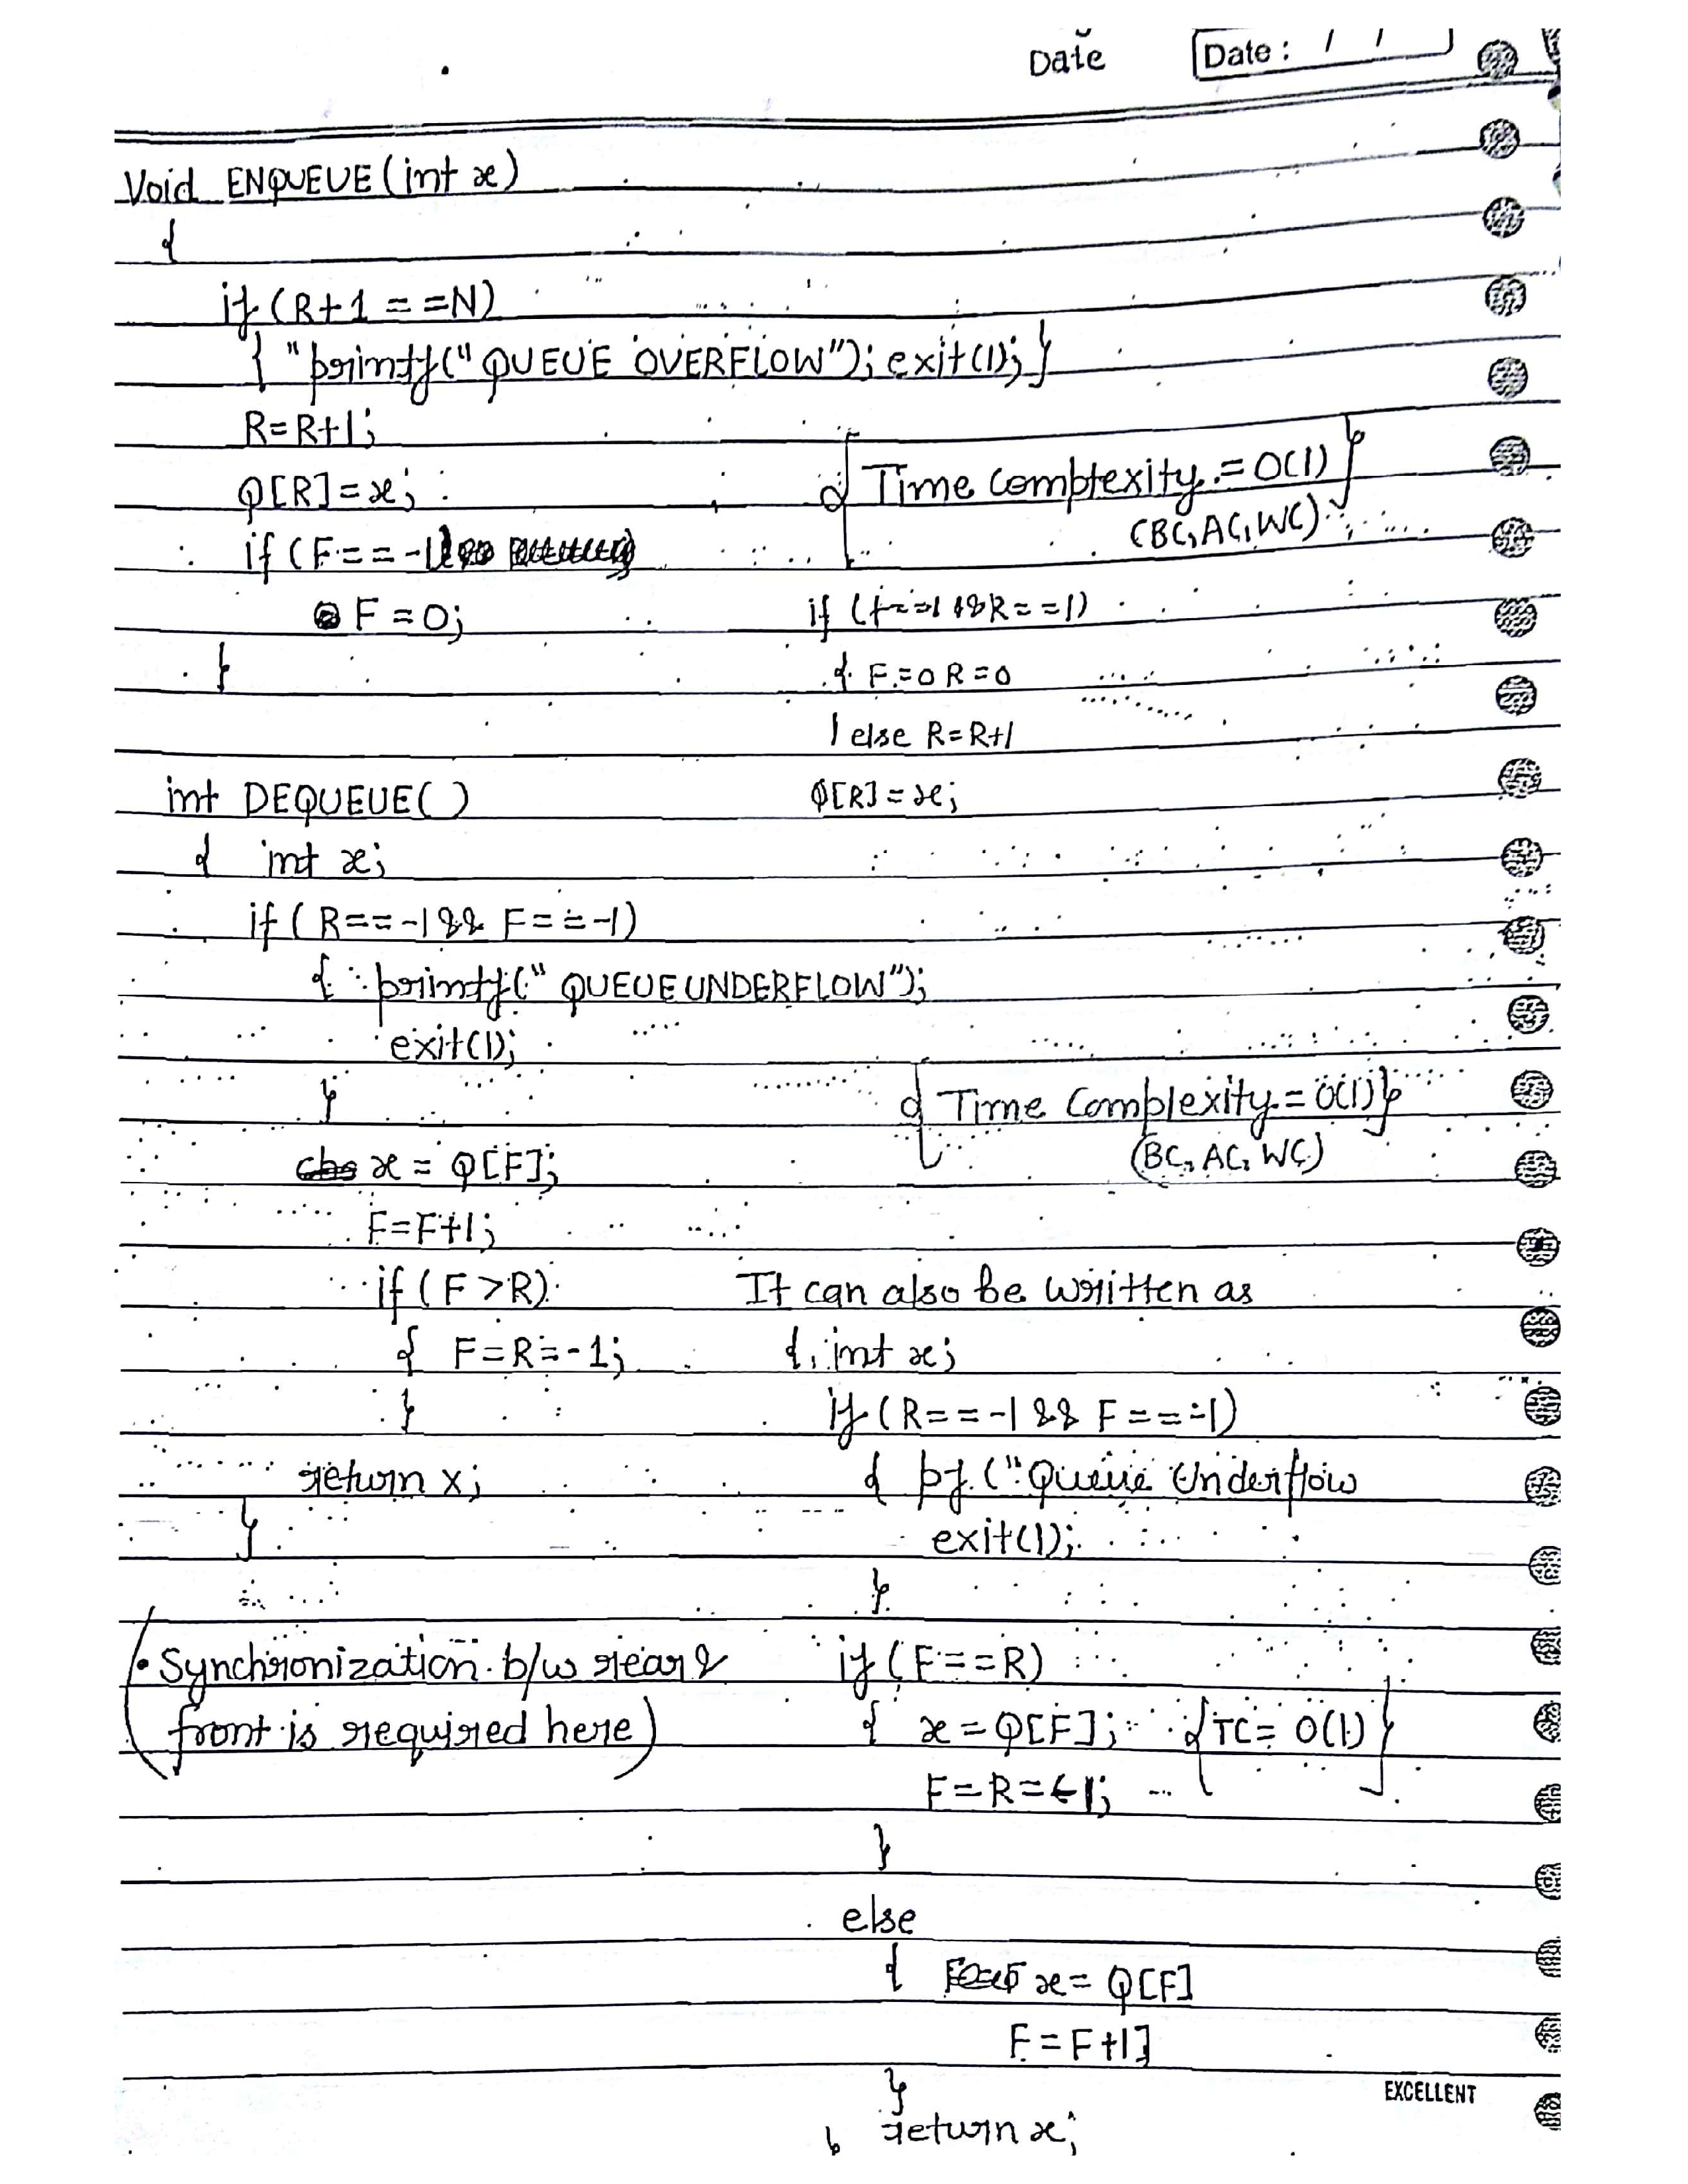 Date
Date : / /
Void ENQUEUE (int x)
{
if (R+1 = =N)
{ "printf(" QUEUE OVERFLOW"); exit(1); }
R=R+1;
Q[R]=x;
{ Time complexity = O(1) }
(BC, AC, WC)
if (F== -1
F = 0;
}
if (f==-1 && R==1)
{ F=0 R=0
} else R=R+1
Q[R] = x;
int DEQUEUE( )
{ int x;
if ( R== -1 && F==-1)
{ printf(" QUEUE UNDERFLOW");
exit(1);
}
{ Time Complexity = O(1) }
(BC, AC, WC)
x = Q[F];
F=F+1;
if ( F >R)
{ F=R=-1;
}
return x;
}
(• Synchronization b/w rear &
front is required here)
It can also be written as
{ int x;
if (R== -1 && F == -1)
{ pf ("Queue Underflow
exit(1);
}
if (F==R)
{ x = Q[F];
F=R=-1;
{TC= O(1)}
}
else
{ x= Q[F]
F = F+1]
}
return x;
EXCELLENT